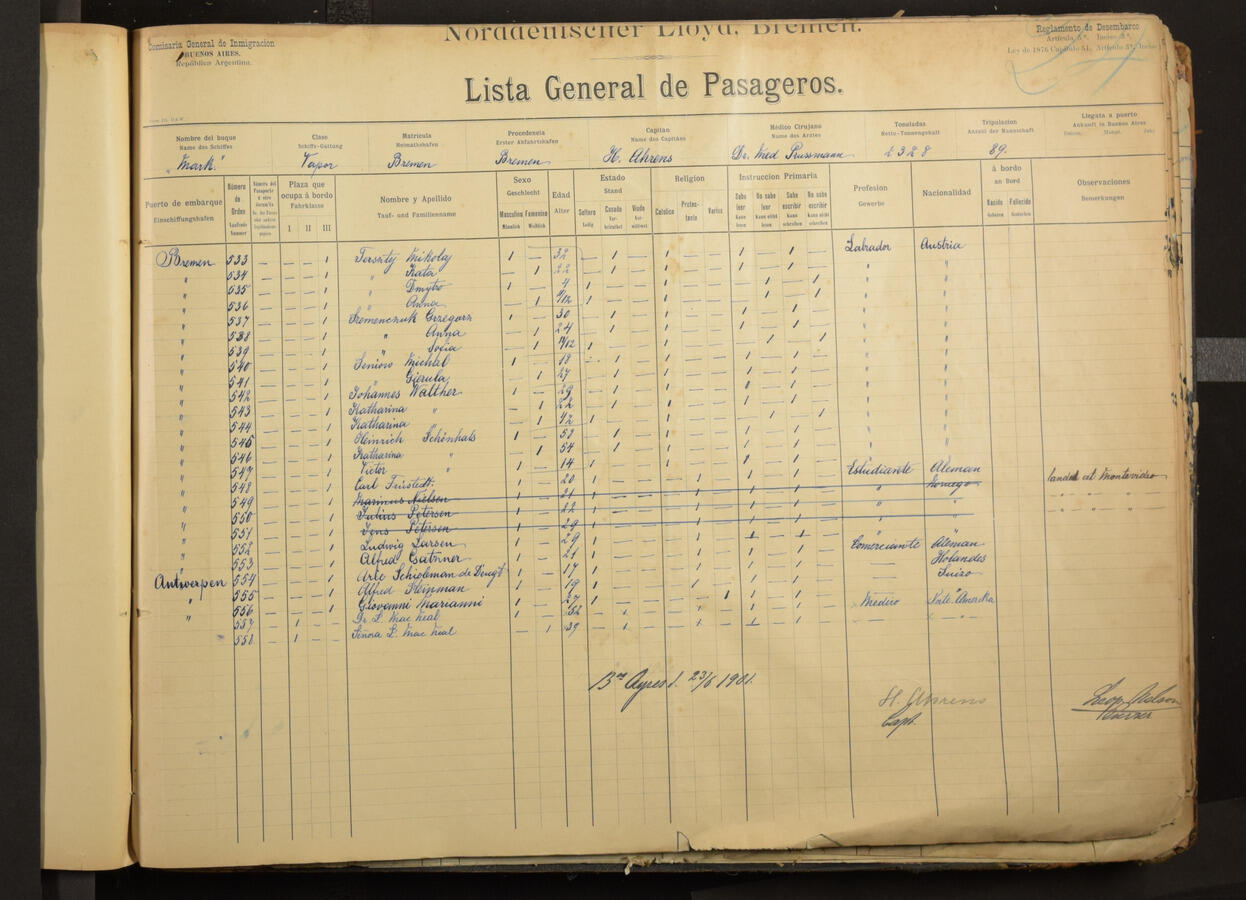 Norddeutscher Lloyd, Bremen.
Comisaria General de Inmigracion
BUENOS AIRES.
República Argentina.
Reglamento de Desembarco
Artícula, 5º. Inciso 3º.
Ley de 1876 Capítulo 51, Artículo 3º, Inciso
Lista General de Pasageros.
Nombre del buque Clase Matricula Procedencia Capitan Médico Cirujano Toneladas Tripulacion Llegata a puerto
Name des Schiffes Schiffs-Gattung Heimathshafen Erster Abfahrtshafen Name des Capitäns Name des Arztes Netto-Tonnengehalt Anzahl der Mannschaft Ankunft in Buenos Aires
„Mark“ Vapor Bremen Bremen H. Ahrens Dr. Med Prussmann 2328 89.
Puerto de embarque Número de Orden Plaza que ocupa á bordo Nombre y Apellido Sexo Edad Estado Religion Instruccion Primaria Profesion Nacionalidad á bordo Observaciones
Einschiffungshafen Laufende Nummer Fahrklasse Tauf- und Familienname Geschlecht Alter Stand Gewerbe an Bord Bemerkungen
I II III Masculino Femenino Soltero Casado Viudo Catolico Protes-tante Varios Sabe leer No sabe leer Sabe escribir No sabe escribir Nacido Fallecido
Männlich Weiblich Ledig Ver-heirathet Ver-wittwet Kann lesen Kann nicht lesen Kann schreiben Kann nicht schreiben Geboren Gestorben
Bremen 533 — — 1 Terszity Mikolaj 1 — 32 — 1 — 1 — — 1 — 1 — Labrador Austria
" 534 — — 1 " Kata — 1 22 — 1 — 1 — — 1 — 1 — " "
" 535 — — 1 " Dmytro 1 — 4 1 — — 1 — — — 1 — 1 " "
" 536 — — 1 " Anna — 1 9/12 1 — — 1 — — — 1 — 1 " "
" 537 — — 1 Szemenczuk Grzegorz 1 — 30 — 1 — 1 — — 1 — 1 — " "
" 538 — — 1 " Anna — 1 24 — 1 — 1 — — 1 — 1 — " "
" 539 — — 1 " Socia — 1 11/12 1 — — 1 — — — 1 — 1 " "
" 540 — — 1 Seniow Michal 1 — 18 — 1 — 1 — — 1 — 1 — " "
" 541 — — 1 " Gierula — 1 27 — 1 — 1 — — 1 — 1 — " "
" 542 — — 1 Johannes Walther 1 — 29 — 1 — 1 — — 1 — 1 — " "
" 543 — — 1 Katharina " — 1 22 — 1 — 1 — — 1 — 1 — " "
" 544 — — 1 Katharina " — 1 1 — — 1 — — — 1 — 1 " "
" 545 — — 1 Heinrich Schönhals 1 — 58 — 1 — 1 — — 1 — 1 — " "
" 546 — — 1 Katharina " — 1 54 — 1 — 1 — — 1 — 1 — " "
" 547 — — 1 Victor " 1 — 14 1 — — 1 — 1 — Estudiante Aleman
" 548 — — 1 Carl Früstedt 1 — 20 1 — — — 1 — 1 — 1 — " Noruego landed at Montevideo
" 549 — — 1 Marinus Nielsen 1 — 21 1 — — — 1 — 1 — 1 — " "
" 550 — — 1 Julius Petersen 1 — 22 1 — — — 1 — 1 — 1 — " "
" 551 — — 1 Jens Petersen 1 — 29 1 — — — 1 — 1 — 1 — " "
" 552 — — 1 Ludwig Larsen 1 — 29 1 — — — 1 — Comerciante Aleman
" 553 — — 1 Alfred Catnner 1 — 21 1 — — — 1 — 1 — 1 — — Holandes
Antwerpen 554 — — 1 Arie Schipleman de Brugt 1 — 17 1 — — — 1 — 1 — 1 — — Suizo
" 555 — — 1 Alfred Steinman 1 — 19 1 — — — 1 — 1 — 1 — — "
" 556 — — 1 Giovemni Marianni 1 — 27 1 — — — — 1 1 — 1 — Medico Norte America
" 557 1 — — Dr. L. Mac Neal 1 — 52 — 1 — — 1 — 1 — 1 — — "
558 1 — — Señora L. Mac Neal — 1 39 — 1 — — 1 — 1 — 1 —
Bos Ayres d. 23/6 1901.
H. Ahrens
Capt.